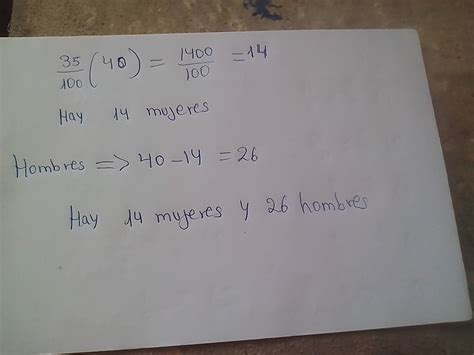 35/100 (40) = 1400/100 = 14
Hay 14 mujeres
Hombres => 40 - 14 = 26
Hay 14 mujeres y 26 hombres